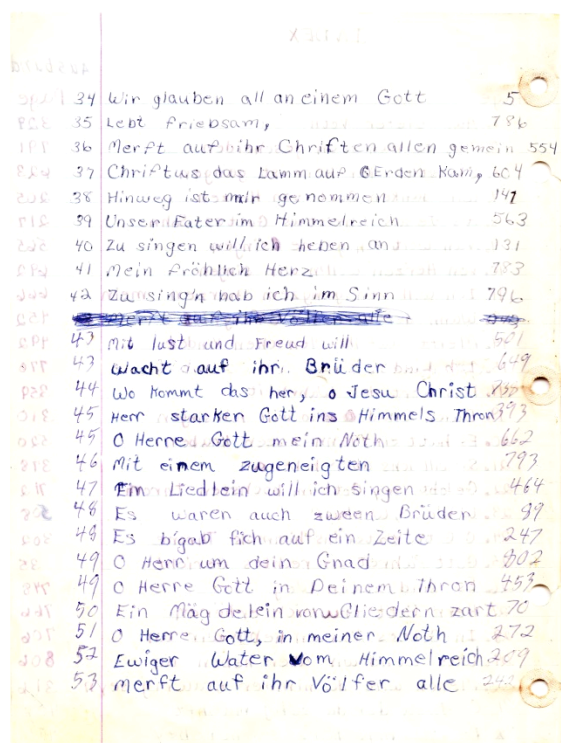 34 Wir glauben all an einem Gott 5
35 Lebt friebsam, 786
36 Merft auf ihr Chriften allen gemein 554
37 Chriftus das Lamm auf Erden Kam, 604
38 Hinweg ist mir genommen 141
39 Unser Fater im Himmelreich 563
40 Zu singen will ich heben an 131
41 Mein fröhlich Herz 783
42 Zu sing'n hab ich im Sinn 796
43 Mit lust und Freud will 501
43 Wacht auf ihr Brüder 649
44 Wo kommt das her, o Jesu Christ
45 Herr starker Gott ins Himmels Thron 393
45 O Herre Gott mein Noth 662
46 Mit einem zugeneigten 793
47 Ein Liedlein will ich singen 464
48 Es waren auch zween Brüder 99
48 Es b'gab fich auf ein Zeite 247
49 O Herr um dein Gnad 802
49 O Herre Gott in Deinem Thron 453
50 Ein Mägdelein von Gliedern zart 70
51 O Herre Gott, in meiner Noth 272
52 Ewiger Water vom Himmelreich 209
53 merft auf ihr Völfer alle 242